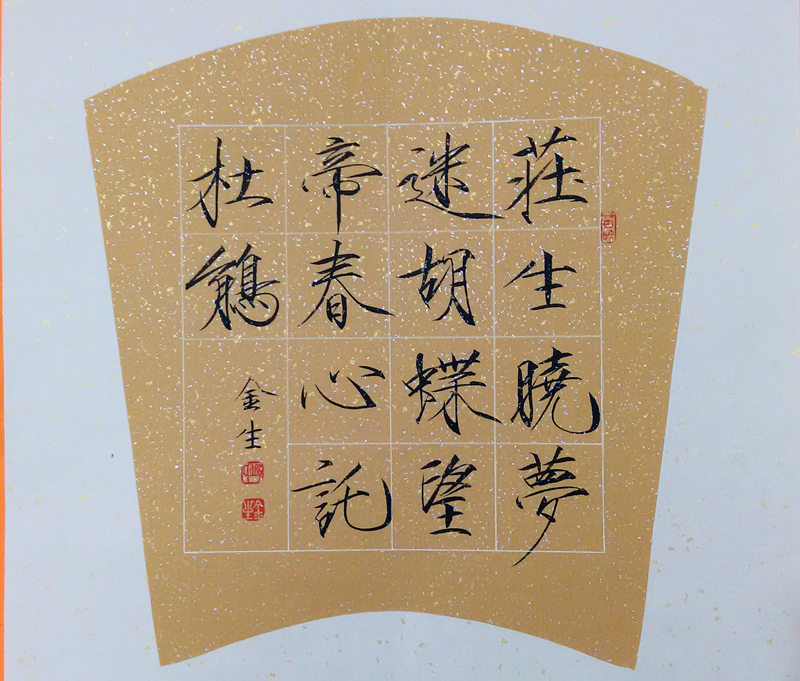 莊生曉夢
迷胡蝶望
帝春心託
杜鵑
金生